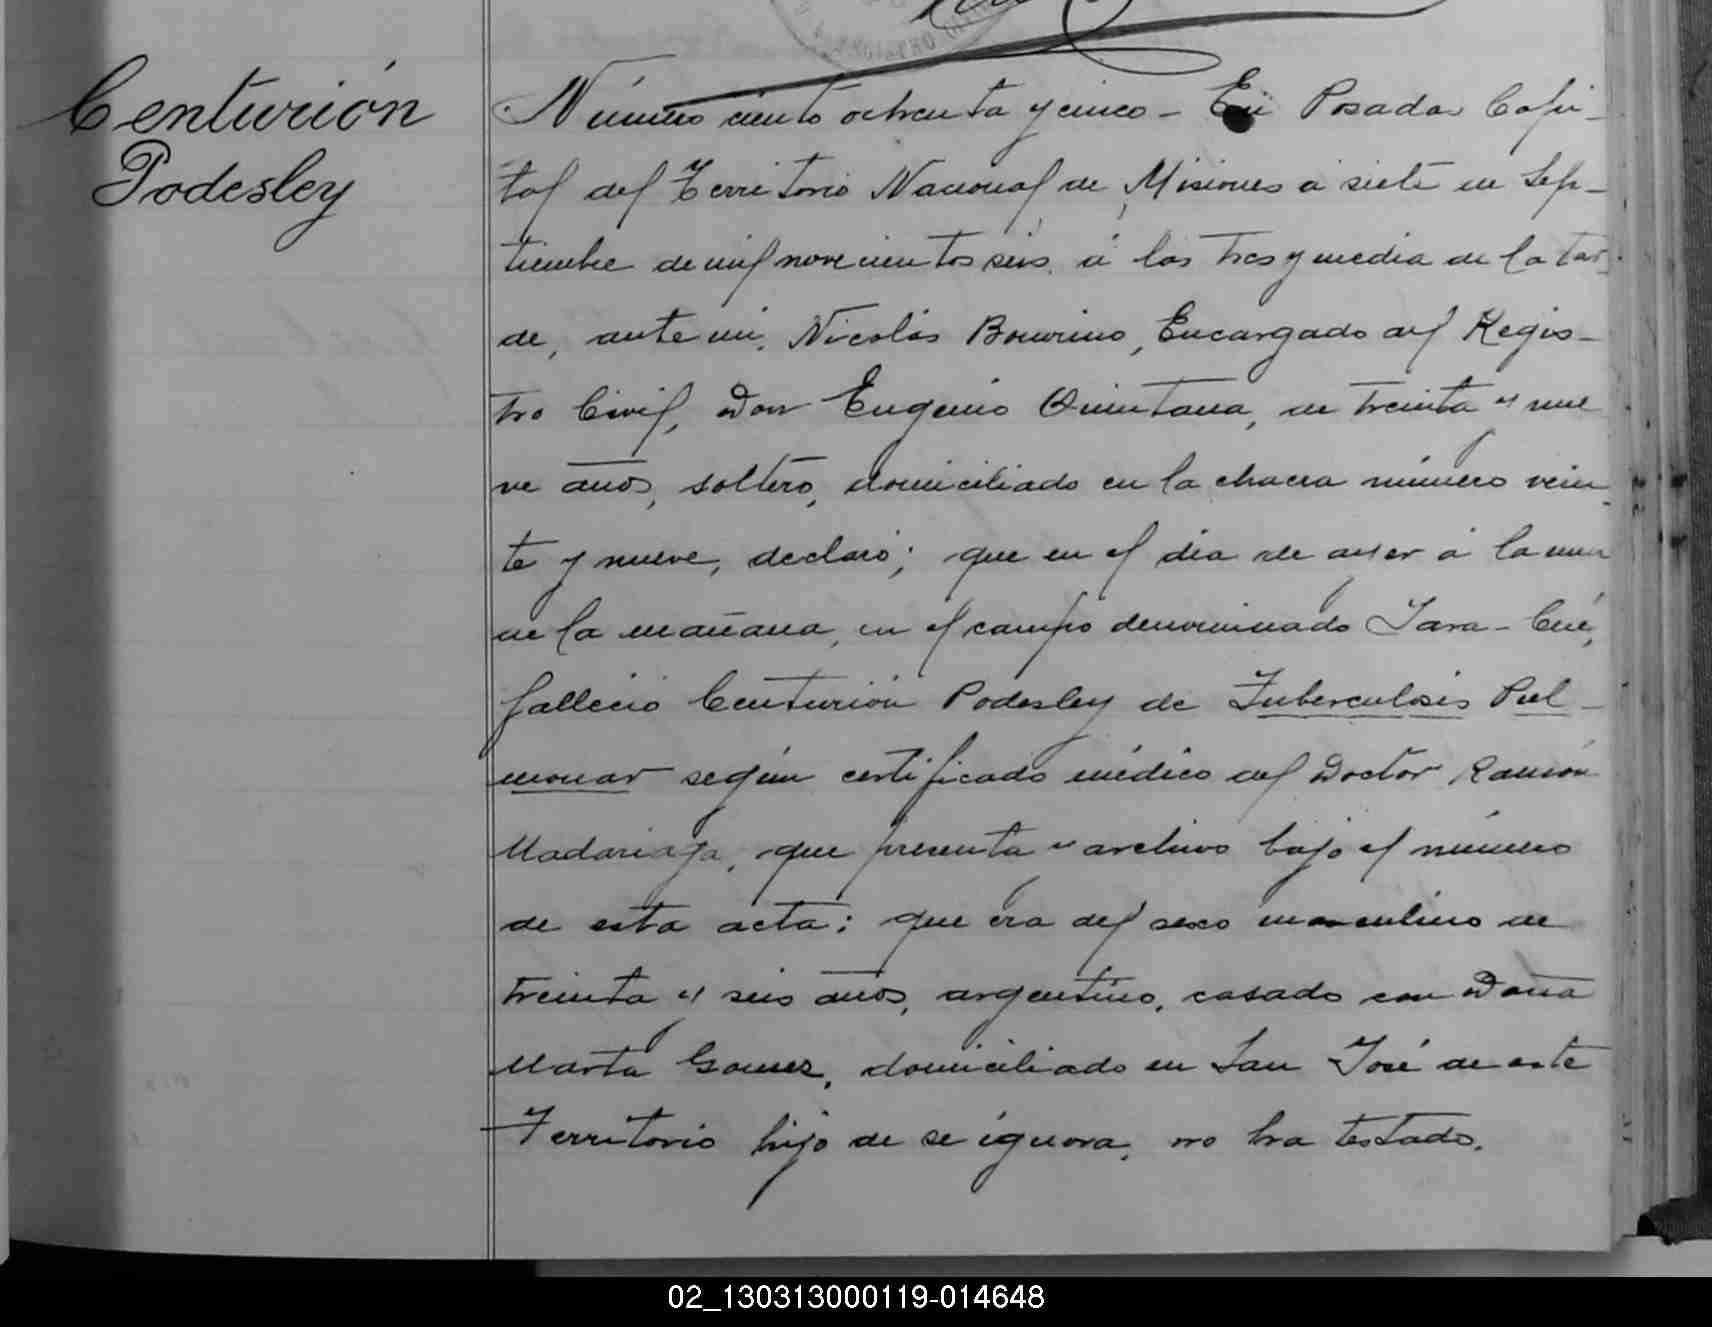 Centurión
Podesley
Número ciento ochenta y cinco - En Posadas Capi-
tal del Territorio Nacional de Misiones á siete de Sep-
tiembre de mil novecientos seis, á las tres y media de la tar-
de, ante mi, Nicolás Bourino, Encargado del Regis-
tro Civil, Don Eugenio Quintana, de treinta y nue
ve años, soltero, domiciliado en la chacra número vein-
te y nueve, declaró; que en el dia de ayer á la una
de la mañana, en el campo denominado Tara-Cué,
falleció Centurión Podesley de Tuberculosis Pul-
monar según certificado médico del Doctor Ramón
Madariaga, que presenta y archivo bajo el número
de esta acta: que era del sexo masculino de
treinta y seis años, argentino, casado con Doña
Marta Gomez, domiciliado en San José de este
Territorio hijo de se ignora, no ha testado.
02_130313000119-014648